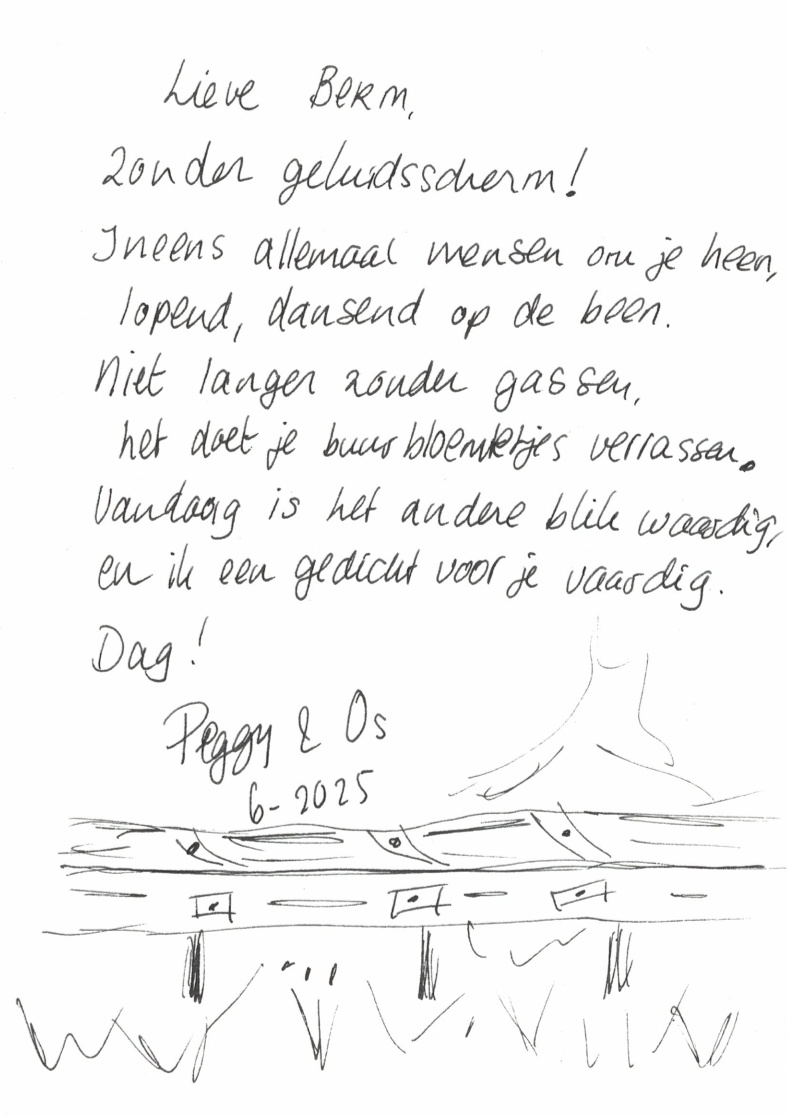 Lieve Berm,
zonder geluidsscherm!
Ineens allemaal mensen om je heen,
lopend, dansend op de been.
Niet langer zonder gassen,
het doet je buurbloemetjes verrassen.
Vandaag is het andere blik waardig,
en ik een gedicht voor je vaardig.
Dag!
Peggy & Os
6-2025